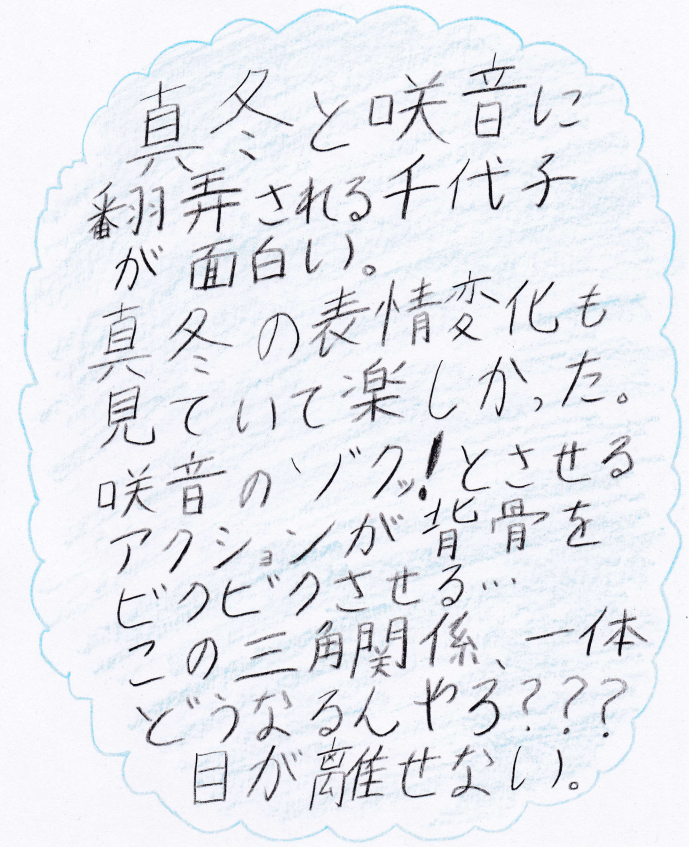 真冬と咲音に
翻弄される千代子
が面白い。
真冬の表情変化も
見ていて楽しかった。
咲音のゾクッ!とさせる
アクションが背骨を
ビクビクさせる…
この三角関係、一体
どうなるんやろ???
目が離せない。